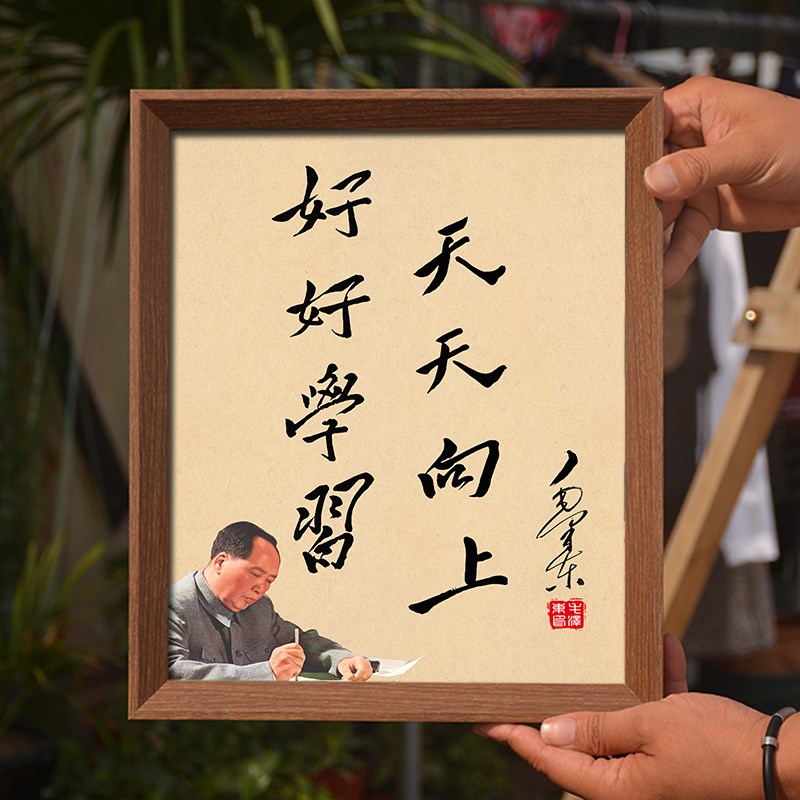 好好學習
天天向上
毛澤東
毛澤東印